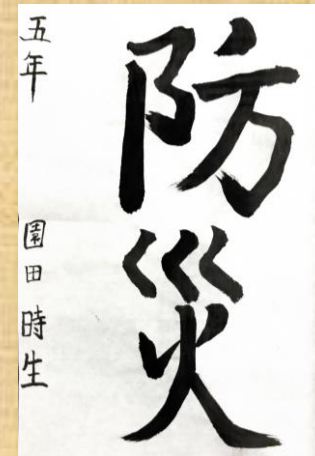 防災
五年 園田時生